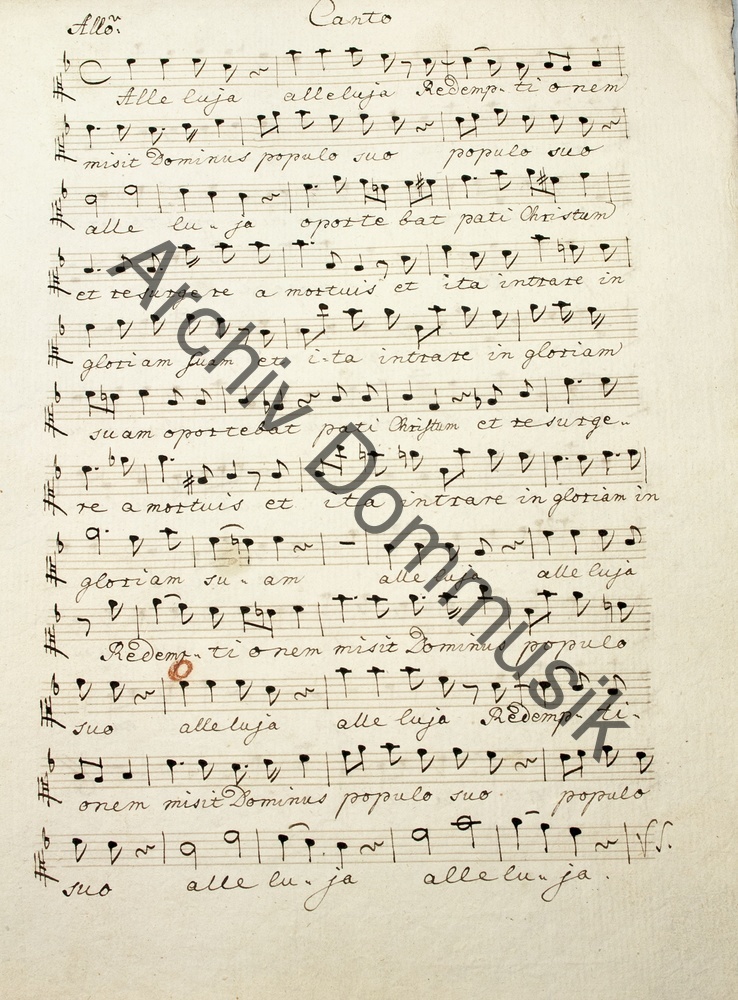 Allo:
Canto
Alle luja alleluja Redemp- ti o nem
misit Dominus populo suo populo suo
alle lu - ja oporte bat pati Christum
et resurge re a mortuis et ita intrare in
gloriam suam et i-ta intrare in gloriam
suam oportebat pati Christum et re surge-
re a mortuis et ita intrare in gloriam in
gloriam su - am alle luja alle luja
Redemp - ti o nem misit Dominus populo
suo alleluja alle luja Redemp- ti-
onem misit Dominus populo suo. populo
suo alle lu - ja alle lu - ja.
Archiv Dommusik